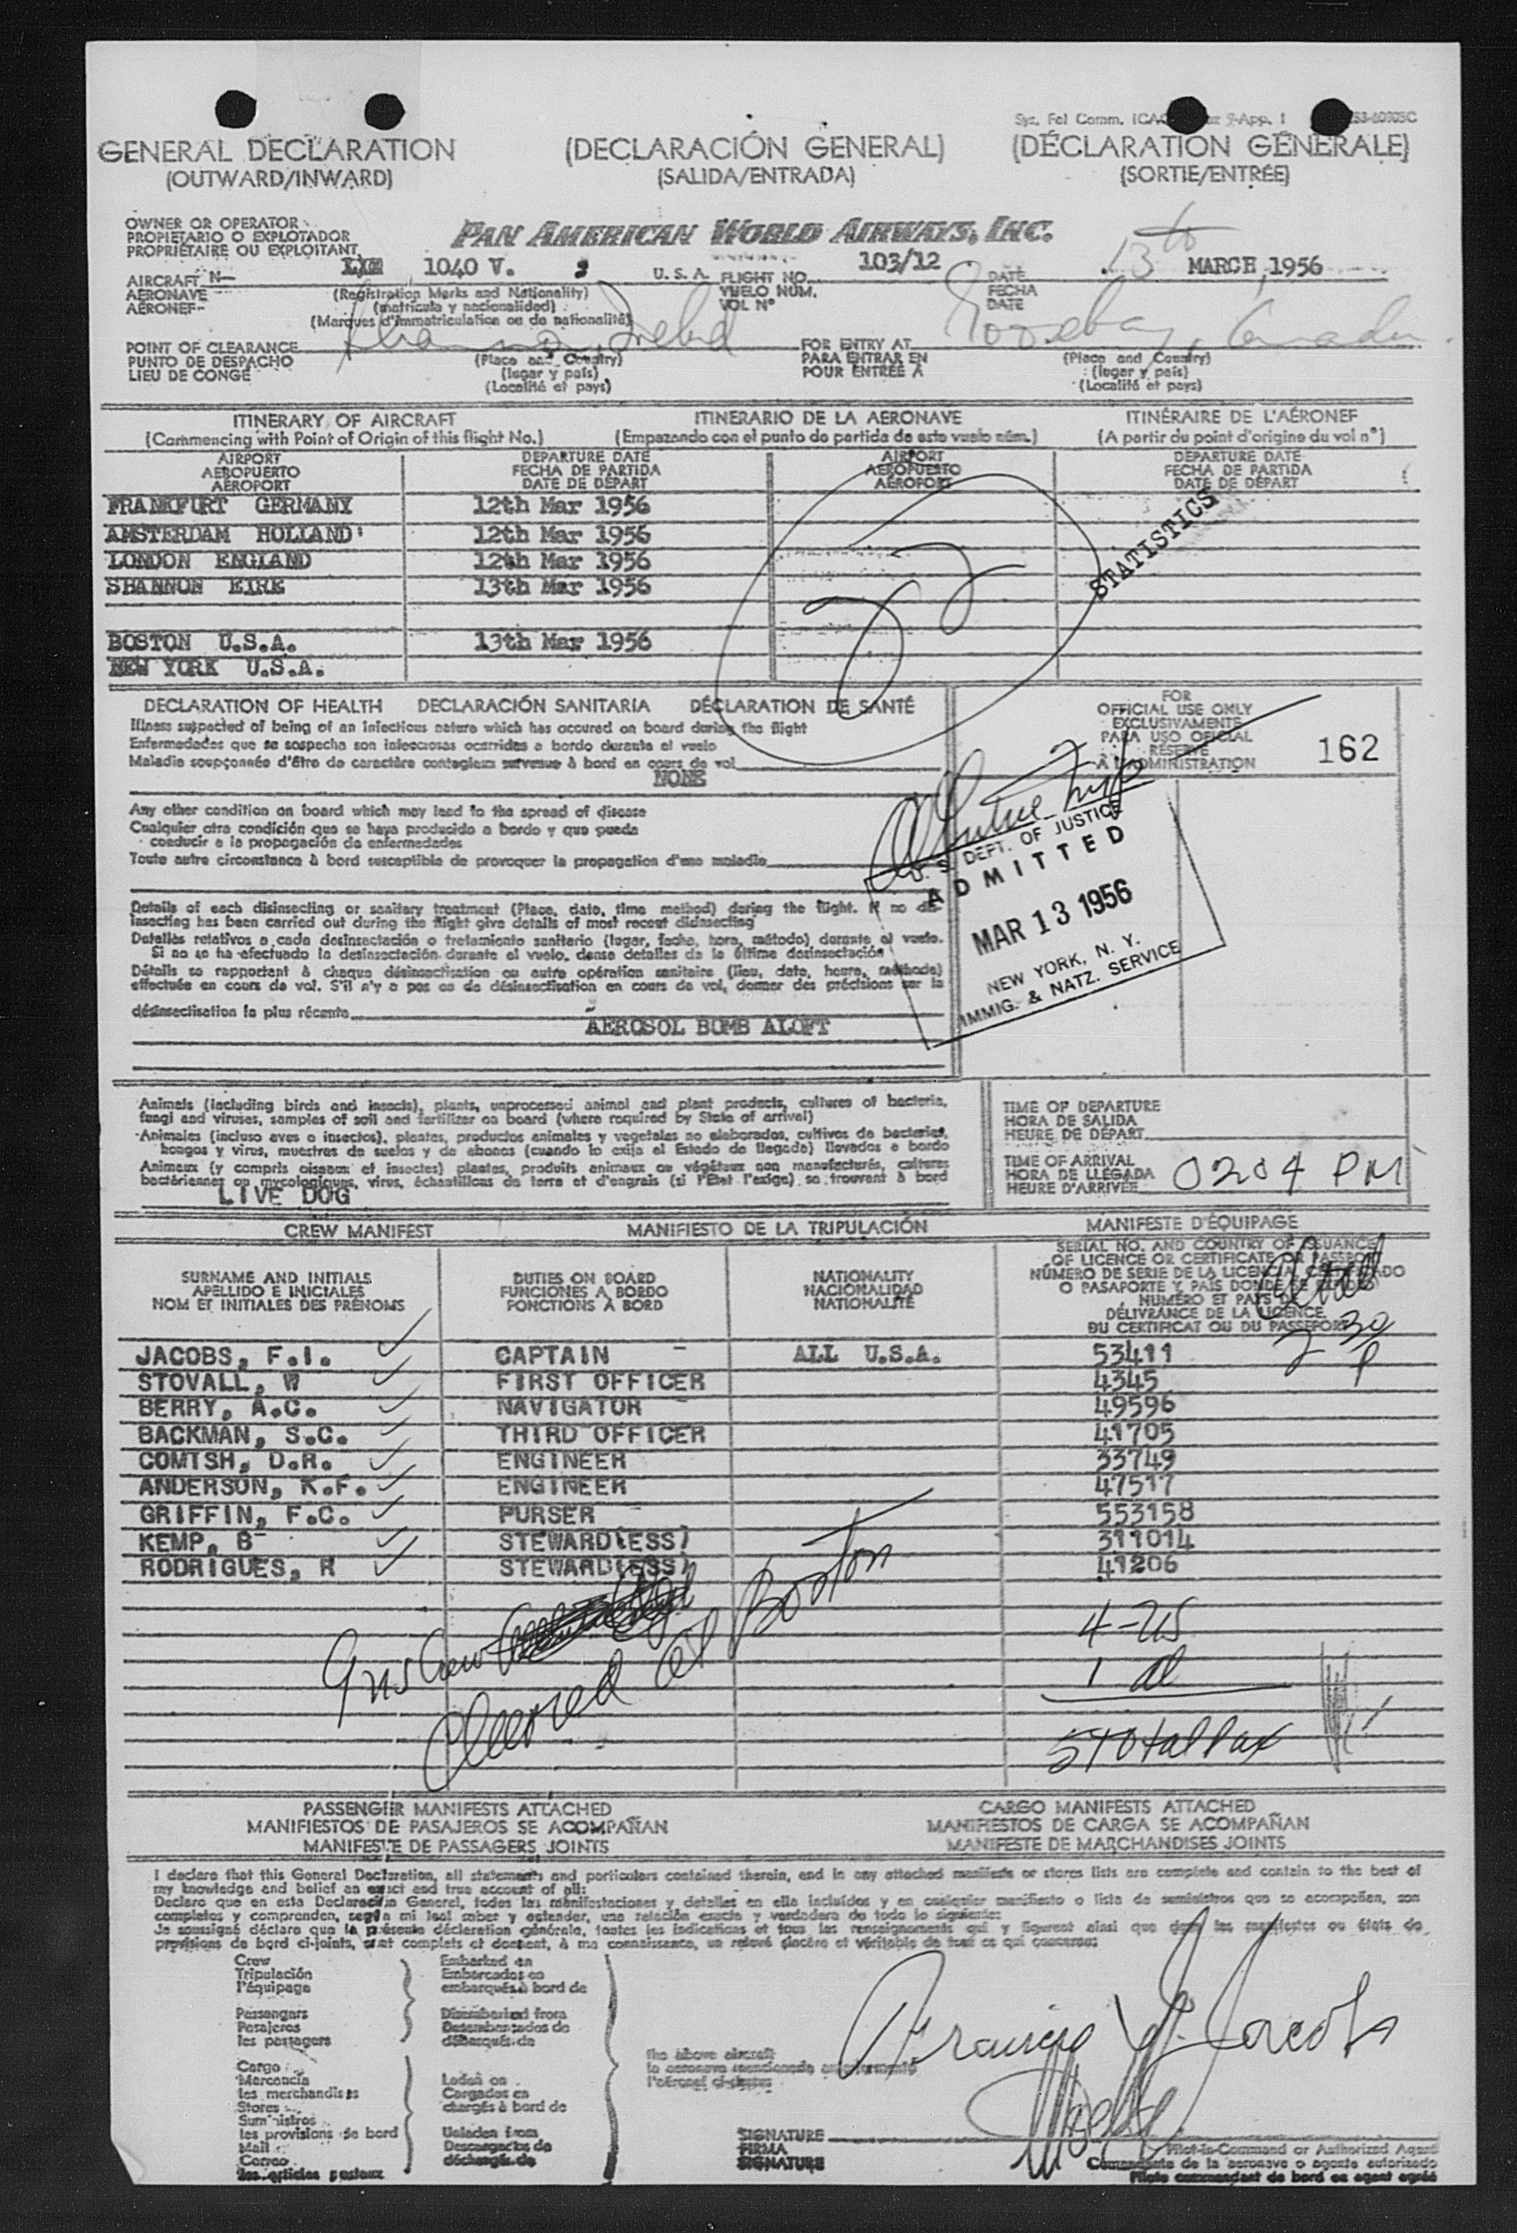 GENERAL DECLARATION (DECLARACIÓN GENERAL) (DÉCLARATION GÉNÉRALE)
(OUTWARD/INWARD) (SALIDA/ENTRADA) (SORTIE/ENTRÉE)
OWNER OR OPERATOR
PROPIETARIO O EXPLOTADOR
PROPRIÉTAIRE OU EXPLOITANT
PAN AMERICAN WORLD AIRWAYS, INC.
AIRCRAFT N- 1040 V. U. S. A. FLIGHT NO. 103/12 DATE 13th MARCH, 1956
AERONAVE (Registration Marks and Nationality) VUELO NUM. FECHA
AÉRONEF- (matrícula y nacionalidad) VOL N° DATE
(Marques d'immatriculation ou de nationalité)
POINT OF CLEARANCE Shannon, Ireland FOR ENTRY AT
PUNTO DE DESPACHO (Place and Country) PARA ENTRAR EN (Place and Country)
LIEU DE CONGÉ (lugar y país) POUR ENTRÉE A (lugar y país)
(Localité et pays) (Localité et pays)
ITINERARY OF AIRCRAFT ITINERARIO DE LA AERONAVE ITINÉRAIRE DE L'AÉRONEF
(Commencing with Point of Origin of this flight No.) (Empezando con el punto de partida de este vuelo núm.) (A partir du point d'origine du vol n°)
AIRPORT DEPARTURE DATE AIRPORT DEPARTURE DATE
AEROPUERTO FECHA DE PARTIDA AEROPUERTO FECHA DE PARTIDA
AÉROPORT DATE DE DÉPART AÉROPORT DATE DE DÉPART
FRANKFURT GERMANY 12th Mar 1956
AMSTERDAM HOLLAND 12th Mar 1956
LONDON ENGLAND 12th Mar 1956
SHANNON EIRE 13th Mar 1956
STATISTICS
BOSTON U.S.A. 13th Mar 1956
NEW YORK U.S.A.
DECLARATION OF HEALTH DECLARACIÓN SANITARIA DÉCLARATION DE SANTÉ
Illness suspected of being of an infectious nature which has occured on board during the flight
Enfermedades que se sospecha son infecciosas ocurridas a bordo durante el vuelo
Maladie soupçonnée d'être de caractère contagieux survenue à bord en cours de vol
NONE
FOR
OFFICIAL USE ONLY
EXCLUSIVAMENTE
PARA USO OFICIAL
RÉSERVÉ
À L'ADMINISTRATION
162
Any other condition on board which may lead to the spread of disease
Cualquier otra condición que se haya producido a bordo y que pueda
conducir a la propagación de enfermedades
Toute autre circonstance à bord susceptible de provoquer la propagation d'une maladie
U. S. DEPT. OF JUSTICE
ADMITTED
MAR 13 1956
NEW YORK, N. Y.
IMMIG. & NATZ. SERVICE
Details of each disinsecting or sanitary treatment (Place, date, time method) during the flight. If no dis-
insecting has been carried out during the flight give details of most recent disinsecting
Detalles relativos a cada desinsectación o tratamiento sanitario (lugar, fecha, hora, método) durante el vuelo.
Si no se ha efectuado la desinsectación durante el vuelo, dense detalles de la última desinsectación
Détails se rapportant à chaque désinsectisation ou autre opération sanitaire (lieu, date, heure, méthode)
effectuée en cours de vol. S'il n'y a pas eu de désinsectisation en cours de vol, donner des précisions sur la
désinsectisation la plus récente
AEROSOL BOMB ALOFT
Animals (including birds and insects), plants, unprocessed animal and plant products, cultures of bacteria,
fungi and viruses, samples of soil and fertilizer on board (where required by State of arrival)
Animales (incluso aves e insectos), plantas, productos animales y vegetales no elaborados, cultivos de bacterias,
hongos y virus, muestras de suelos y de abonos (cuando lo exija el Estado de llegada) llevados a bordo
Animaux (y compris oiseaux et insectes) plantes, produits animaux ou végétaux non manufacturés, cultures
bactériennes ou mycologiques, virus, échantillons de terre et d'engrais (si l'État l'exige) se trouvant à bord
LIVE DOG
TIME OF DEPARTURE
HORA DE SALIDA
HEURE DE DÉPART
TIME OF ARRIVAL
HORA DE LLEGADA
HEURE D'ARRIVÉE 0204 PM
CREW MANIFEST MANIFIESTO DE LA TRIPULACIÓN MANIFESTE D'ÉQUIPAGE
SURNAME AND INITIALS DUTIES ON BOARD NATIONALITY
APELLIDO E INICIALES FUNCIONES A BORDO NACIONALIDAD
NOM ET INITIALES DES PRÉNOMS FONCTIONS À BORD NATIONALITÉ
SERIAL NO. AND COUNTRY OF ISSUANCE
OF LICENCE OR CERTIFICATE OR PASSPORT
NÚMERO DE SERIE DE LA LICENCIA, CERTIFICADO
O PASAPORTE Y PAÍS DONDE SE
NUMÉRO ET PAYS DE
DÉLIVRANCE DE LA LICENCE,
DU CERTIFICAT OU DU PASSEPORT
2 30 P
JACOBS, F.I. CAPTAIN ALL U.S.A. 53411
STOVALL, W FIRST OFFICER 4345
BERRY, A.C. NAVIGATOR 49596
BACKMAN, S.C. THIRD OFFICER 41705
COMTSH, D.R. ENGINEER 33749
ANDERSON, K.F. ENGINEER 47517
GRIFFIN, F.C. PURSER 553158
KEMP, B STEWARD(ESS) 311014
RODRIGUES, R STEWARD(ESS) 41206
Crew
Cleared at Boston
4-US
1 al
5 Total Pax
PASSENGER MANIFESTS ATTACHED CARGO MANIFESTS ATTACHED
MANIFIESTOS DE PASAJEROS SE ACOMPAÑAN MANIFIESTOS DE CARGA SE ACOMPAÑAN
MANIFESTE DE PASSAGERS JOINTS MANIFESTE DE MARCHANDISES JOINTS
I declare that this General Declaration, all statements and particulars contained therein, and in any attached manifests or stores lists are complete and contain to the best of
my knowledge and belief an exact and true account of all:
Declaro que en esta Declaración General, todas las manifestaciones y detalles en ella incluidos y en cualquier manifiesto o lista de suministros que se acompañan, son
completos y comprenden, según mi leal saber y entender, una relación exacta y verdadera de todo lo siguiente:
Je soussigné déclare que la présente déclaration générale, toutes les indications et tous les renseignements qui y figurent ainsi que dans les manifestes ou états de
provisions de bord ci-joints, sont complets et donnent, à ma connaissance, un relevé sincère et véritable de tout ce qui concerne:
Crew Embarked on
Tripulación Embarcados en
l'équipage embarqués à bord de
Passengers Disembarked from
Pasajeros Desembarcados de
les passagers débarqués de
Cargo
Mercancía Laden on
les merchandises Cargados en
Stores chargés à bord de
Suministros
les provisions de bord Unladen from
Mail Descargados de
Correo déchargés de
les articles postaux
the above aircraft
la aeronave mencionada anteriormente
l'aéronef ci-dessus
Francis I. Jacobs
SIGNATURE
FIRMA
SIGNATURE
Pilot-in-Command or Authorized Agent
Comandante de la aeronave o agente autorizado
Pilote commandant de bord ou agent agréé